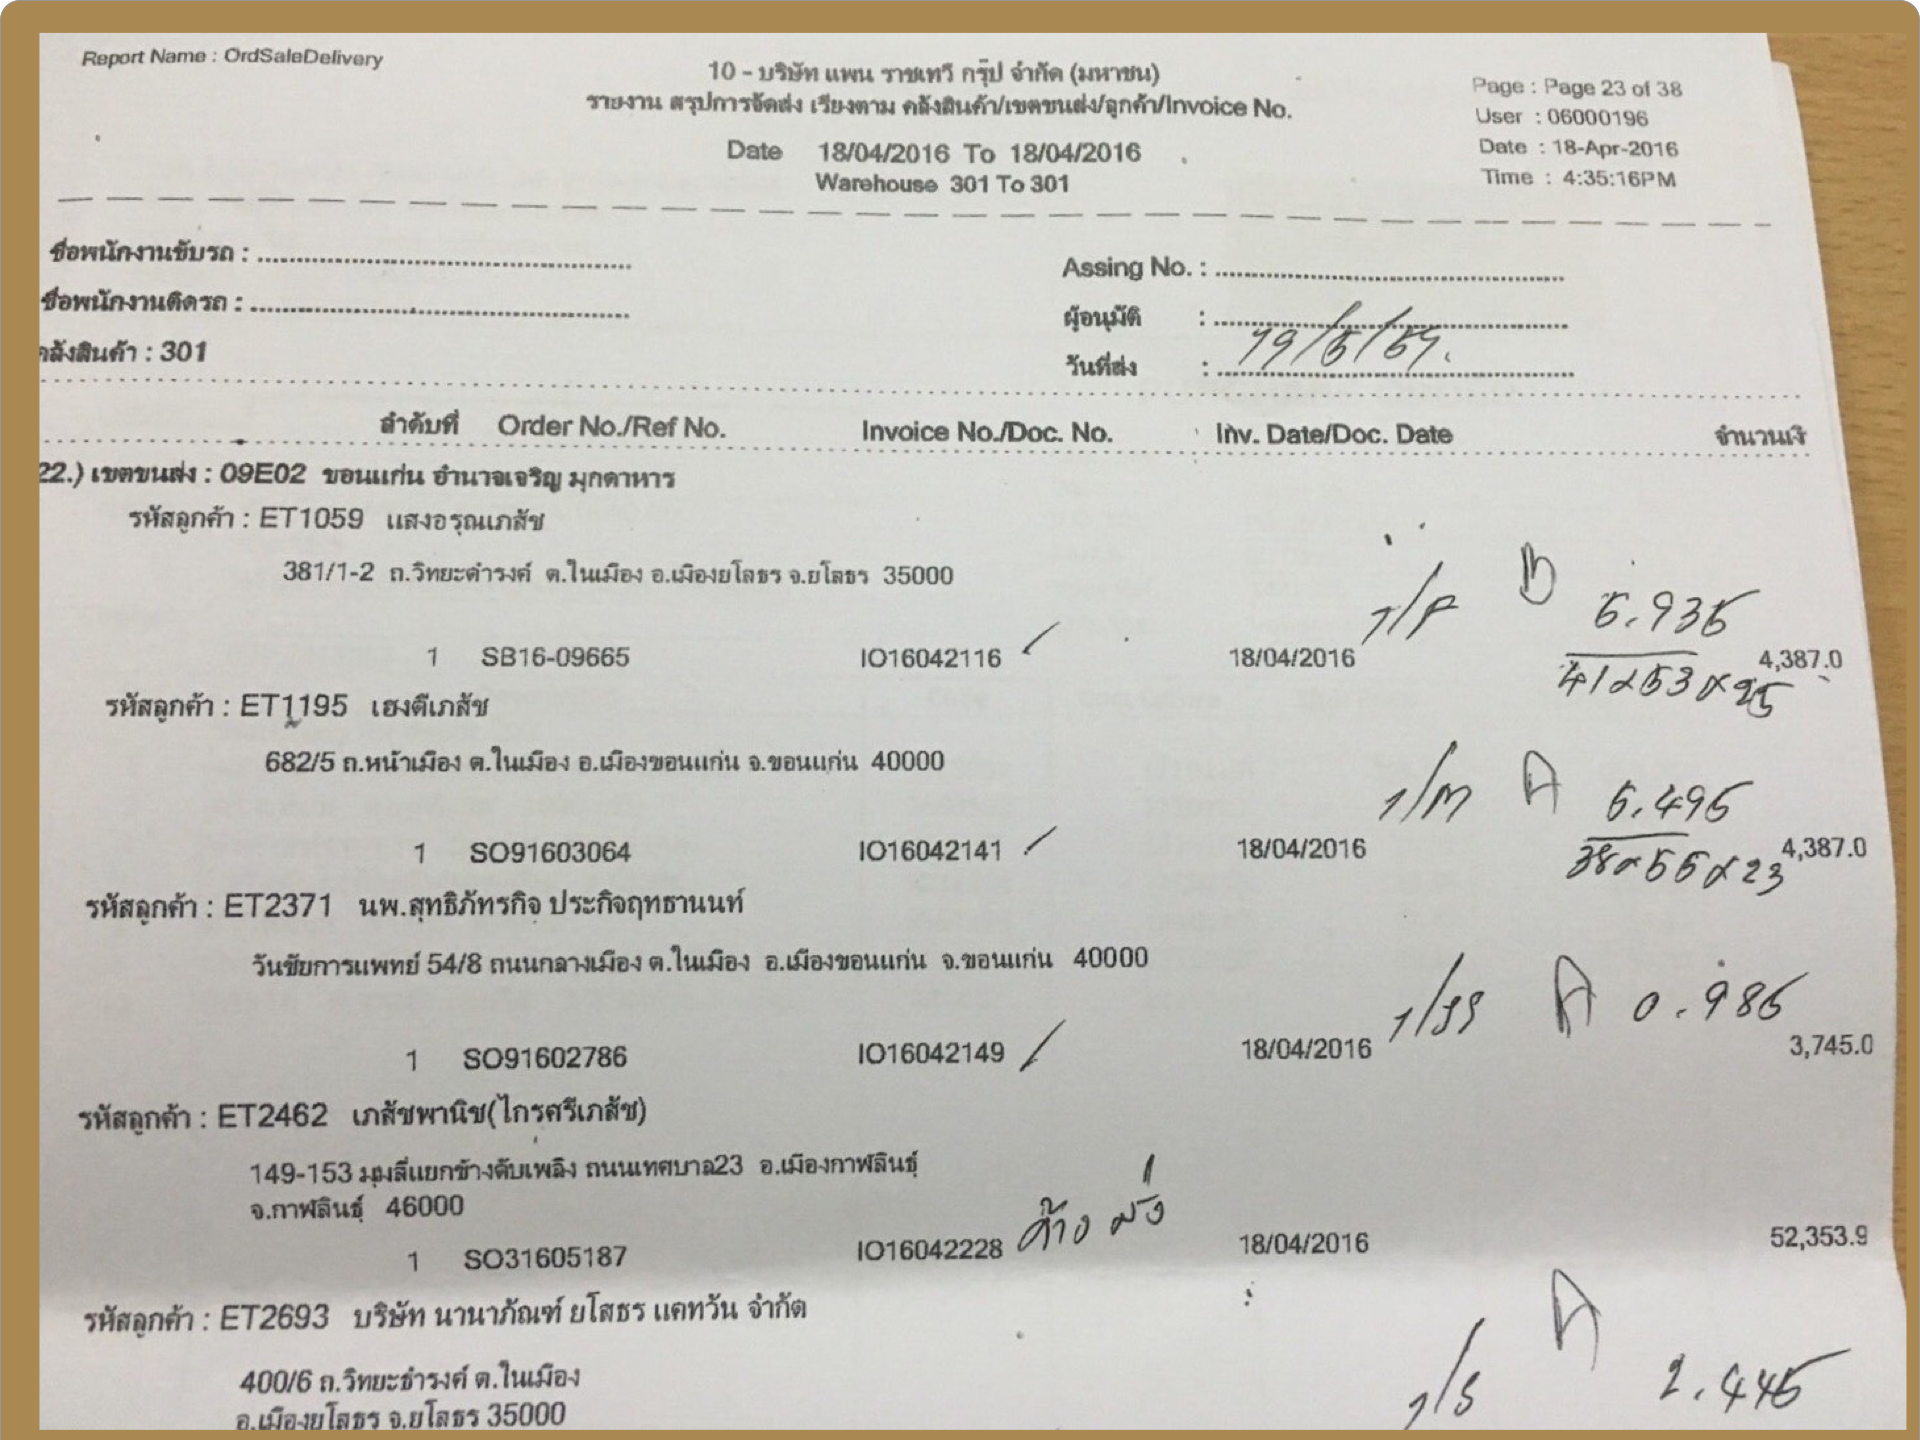 Report Name : OrdSaleDelivery
10 - บริษัท แพน ราชเทวี กรุ๊ป จำกัด (มหาชน)
รายงาน สรุปการจัดส่ง เรียงตาม คลังสินค้า/เขตขนส่ง/ลูกค้า/Invoice No.
Date 18/04/2016 To 18/04/2016
Warehouse 301 To 301
Page : Page 23 of 38
User : 06000196
Date : 18-Apr-2016
Time : 4:35:16PM
ชื่อพนักงานขับรถ :
Assing No. :
ชื่อพนักงานติดรถ :
ผู้อนุมัติ :
คลังสินค้า : 301
วันที่ส่ง : 19/5/59.
ลำดับที่ Order No./Ref No. Invoice No./Doc. No. Inv. Date/Doc. Date จำนวนเงิ
22.) เขตขนส่ง : 09E02 ขอนแก่น อำนาจเจริญ มุกดาหาร
รหัสลูกค้า : ET1059 แสงอรุณเภสัช
381/1-2 ถ.วิทยะดำรงค์ ต.ในเมือง อ.เมืองยโสธร จ.ยโสธร 35000
1/P B 5.935
1 SB16-09665 IO16042116 18/04/2016 4,387.0
41x53x25
รหัสลูกค้า : ET1195 เฮงดีเภสัช
682/5 ถ.หน้าเมือง ต.ในเมือง อ.เมืองขอนแก่น จ.ขอนแก่น 40000
1/m A 5.495
1 SO91603064 IO16042141 18/04/2016 4,387.0
38x55x23
รหัสลูกค้า : ET2371 นพ.สุทธิภัทรกิจ ประกิจฤทธานนท์
วันชัยการแพทย์ 54/8 ถนนกลางเมือง ต.ในเมือง อ.เมืองขอนแก่น จ.ขอนแก่น 40000
A 0.985
1 SO91602786 IO16042149 18/04/2016 3,745.0
รหัสลูกค้า : ET2462 เภสัชพานิช(ไกรศรีเภสัช)
149-153 มุมสี่แยกข้างดับเพลิง ถนนเทศบาล23 อ.เมืองกาฬสินธุ์
จ.กาฬสินธุ์ 46000
1 SO31605187 IO16042228 ค้าง ส่ง 18/04/2016 52,353.9
รหัสลูกค้า : ET2693 บริษัท นานาภัณฑ์ ยโสธร แคทวัน จำกัด
400/6 ถ.วิทยะธำรงค์ ต.ในเมือง
1/S A 2.445
อ.เมืองยโสธร จ.ยโสธร 35000